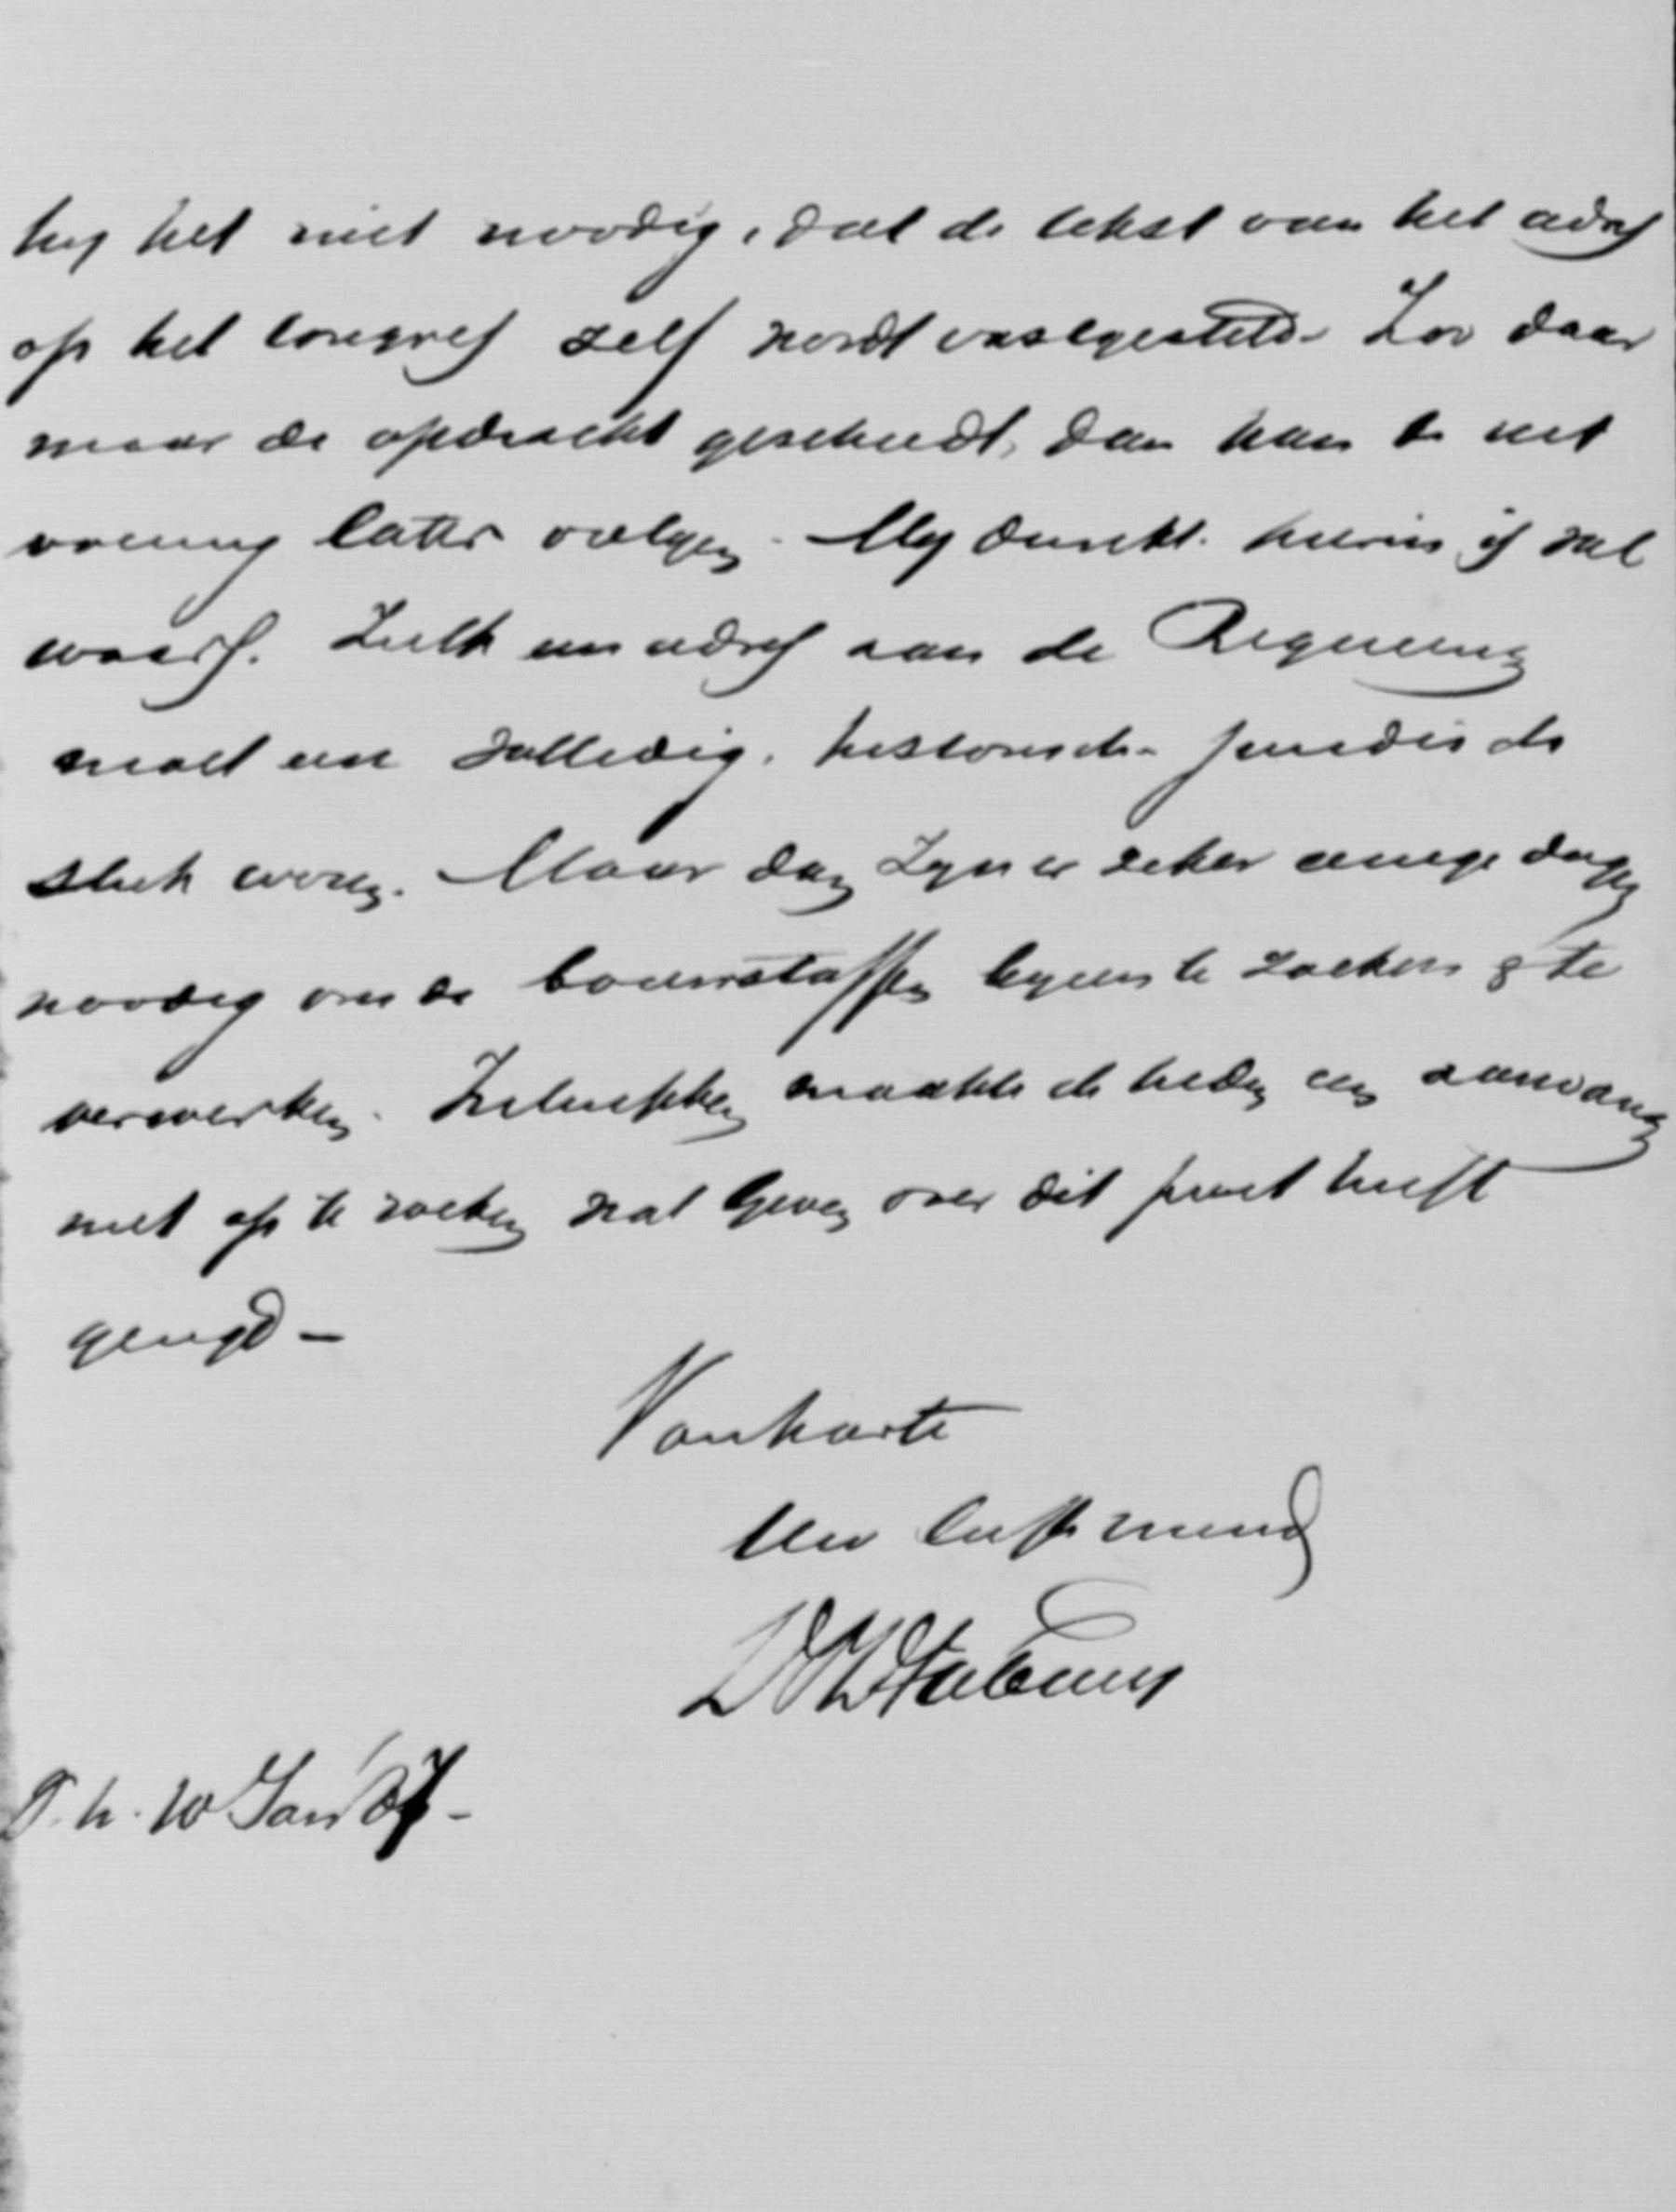 het niet noodig, dat de tekst van het adres
op het congres zelf wordt vastgesteld. Zoo daar
maar de opdracht geschiedt, dan kan de uit
voering later volgen. My dunkt. hierin is wel
waars. Zulk een adres aan de Regeering
moet een volledig, historisch-juridisch
stuk worden. Maar dan zyn er zeker eenige dagen
noodig om de bouwstoffen byeen te zoeken & te
verwerken. Intusschen maakte ik heden een aanvang
met op te zoeken wat over dit punt heeft
gezegd —
Van harte
Uw vriend